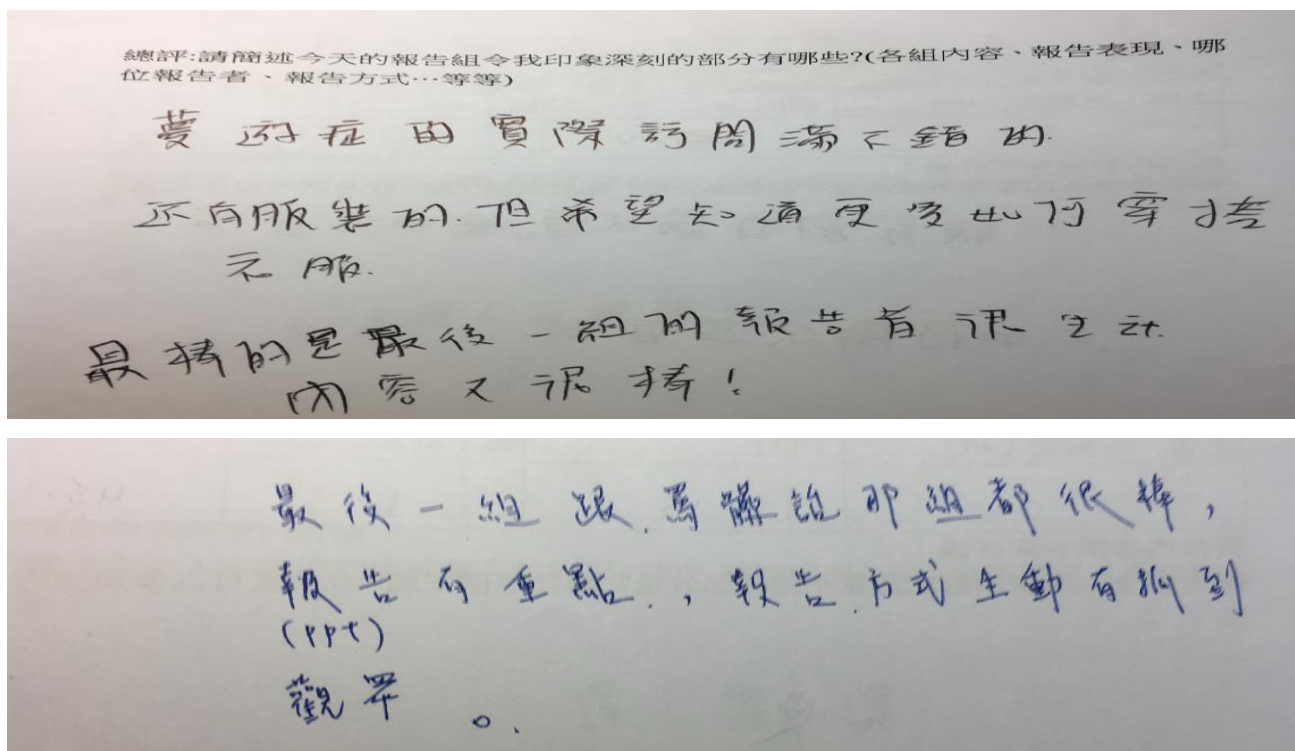 總評:請簡述今天的報告組令我印象深刻的部分有哪些?(各組內容、報告表現、哪
位報告者、報告方式…等等)
夢遊症的實際訪問滿不錯的.
还有服裝的.但希望知道更多如何穿搭
衣服.
最棒的是最後一組的報告有很生动.
內容又很棒!
最後一組跟罵髒話那組都很棒,
報告有重點.,報告方式生動有抓到
(ppt)
觀眾。